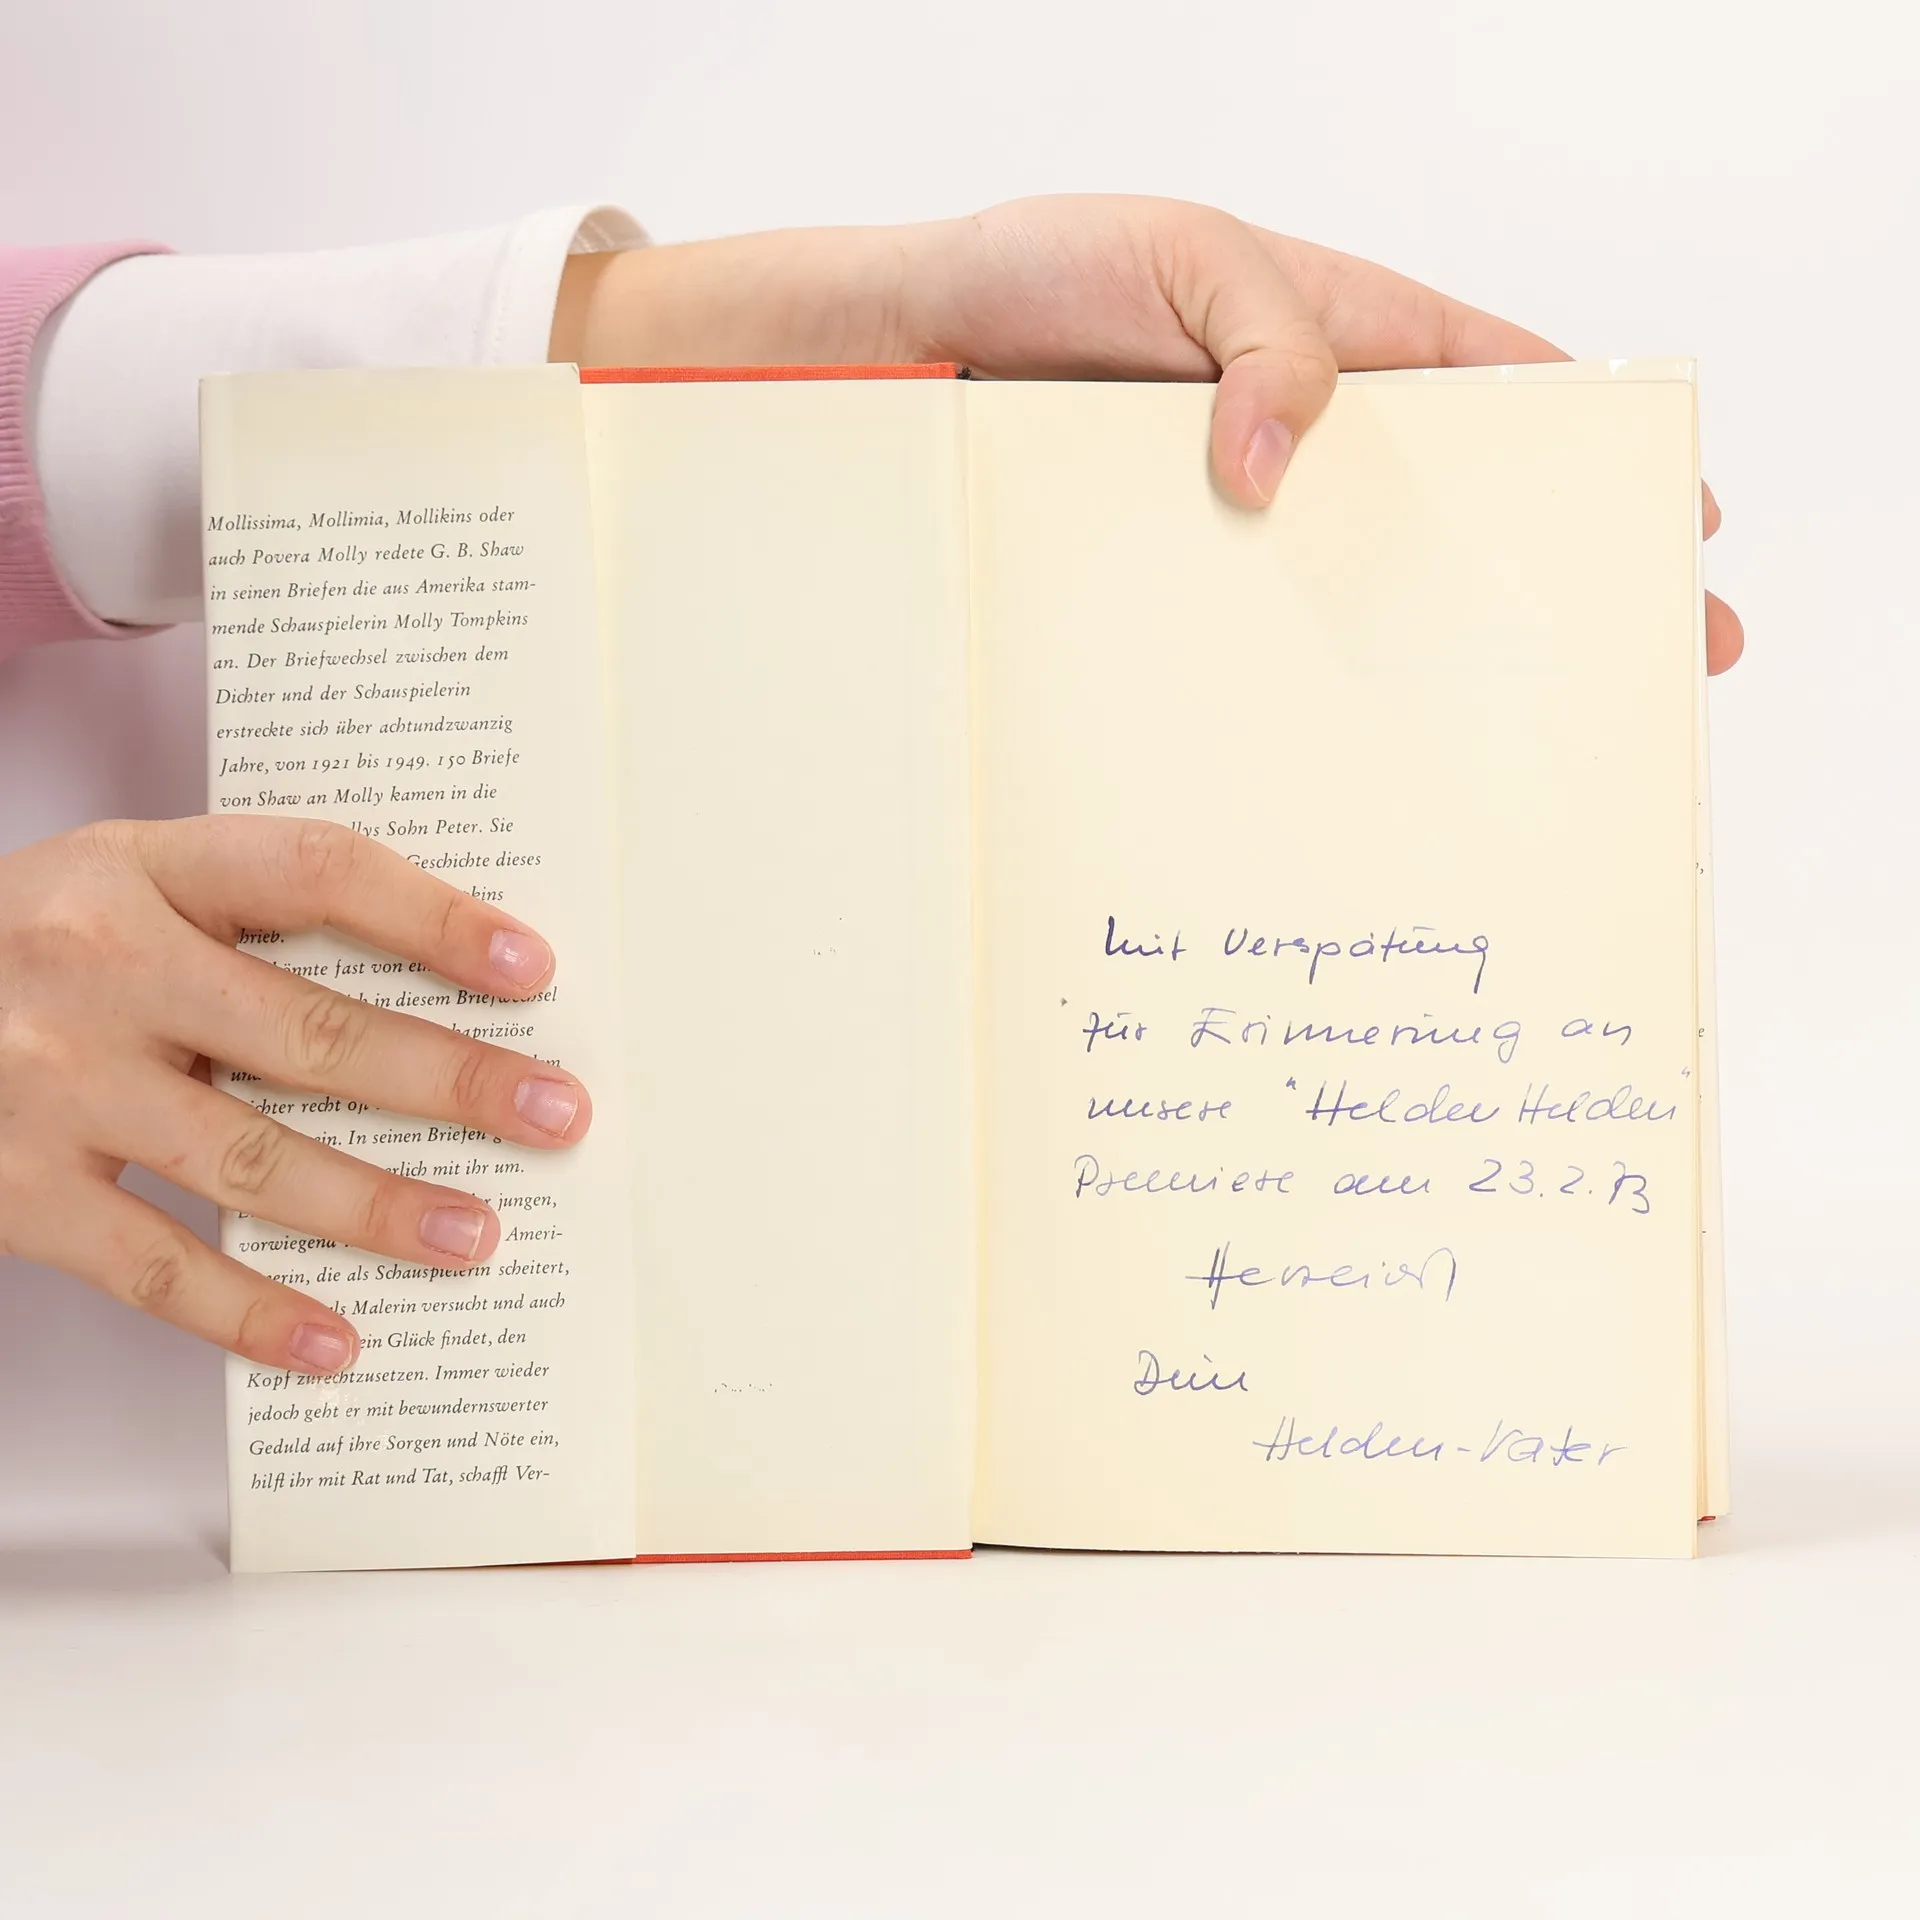 Mollissima, Mollimia, Mollikins oder
auch Povera Molly redete G. B. Shaw
in seinen Briefen die aus Amerika stam-
mende Schauspielerin Molly Tompkins
an. Der Briefwechsel zwischen dem
Dichter und der Schauspielerin
erstreckte sich über achtundzwanzig
Jahre, von 1921 bis 1949. 150 Briefe
von Shaw an Molly kamen in die
llys Sohn Peter. Sie
Geschichte dieses
kins
hrieb.
önnte fast von
in diesem
kapriziöse
ichter recht
ein. In seinen Briefen
erlich mit ihr um.
jungen,
vorwiegend Ameri-
nerin, die als Schauspielerin scheitert,
als Malerin versucht und auch
ein Glück findet, den
Kopf zurechtzusetzen. Immer wieder
jedoch geht er mit bewundernswerter
Geduld auf ihre Sorgen und Nöte ein,
hilft ihr mit Rat und Tat, schafft Ver-
Mit Verspätung
zur Erinnerung an
unsere "Helden Helden"
Premiere am 23.2.73
Herzlichst
Dein
Helden-Vater